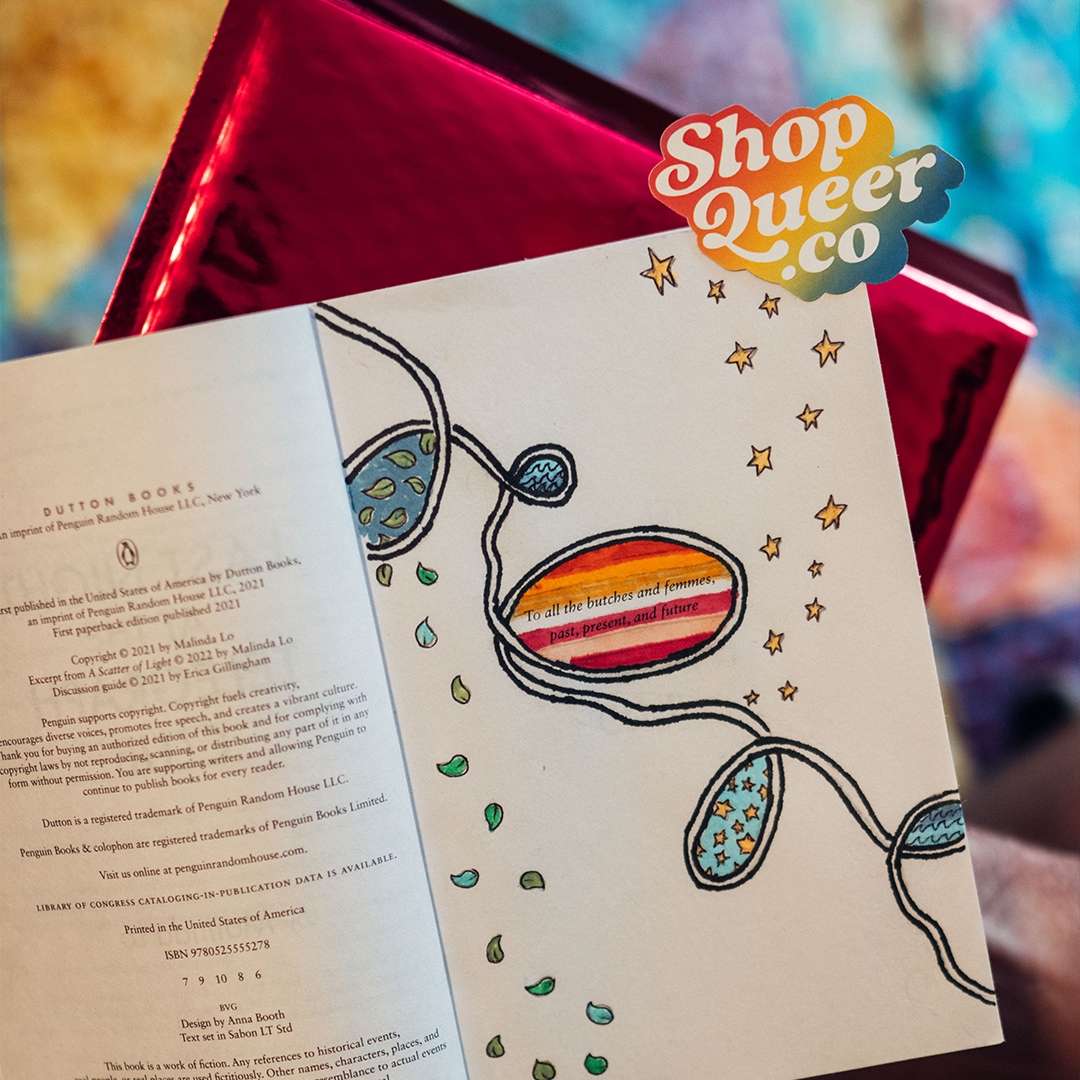 Shop
Queer
.co
DUTTON BOOKS
An imprint of Penguin Random House LLC, New York
First published in the United States of America by Dutton Books,
an imprint of Penguin Random House LLC, 2021
First paperback edition published 2021
Copyright © 2021 by Malinda Lo
Excerpt from A Scatter of Light © 2022 by Malinda Lo
Discussion guide © 2021 by Erica Gillingham
Penguin supports copyright. Copyright fuels creativity,
encourages diverse voices, promotes free speech, and creates a vibrant culture.
Thank you for buying an authorized edition of this book and for complying with
copyright laws by not reproducing, scanning, or distributing any part of it in any
form without permission. You are supporting writers and allowing Penguin to
continue to publish books for every reader.
Dutton is a registered trademark of Penguin Random House LLC.
Penguin Books & colophon are registered trademarks of Penguin Books Limited.
Visit us online at penguinrandomhouse.com.
LIBRARY OF CONGRESS CATALOGING-IN-PUBLICATION DATA IS AVAILABLE.
Printed in the United States of America
ISBN 9780525555278
7 9 10 8 6
BVG
Design by Anna Booth
Text set in Sabon LT Std
This book is a work of fiction. Any references to historical events,
real people, or real places are used fictitiously. Other names, characters, places, and
resemblance to actual events
To all the butches and femmes,
past, present, and future